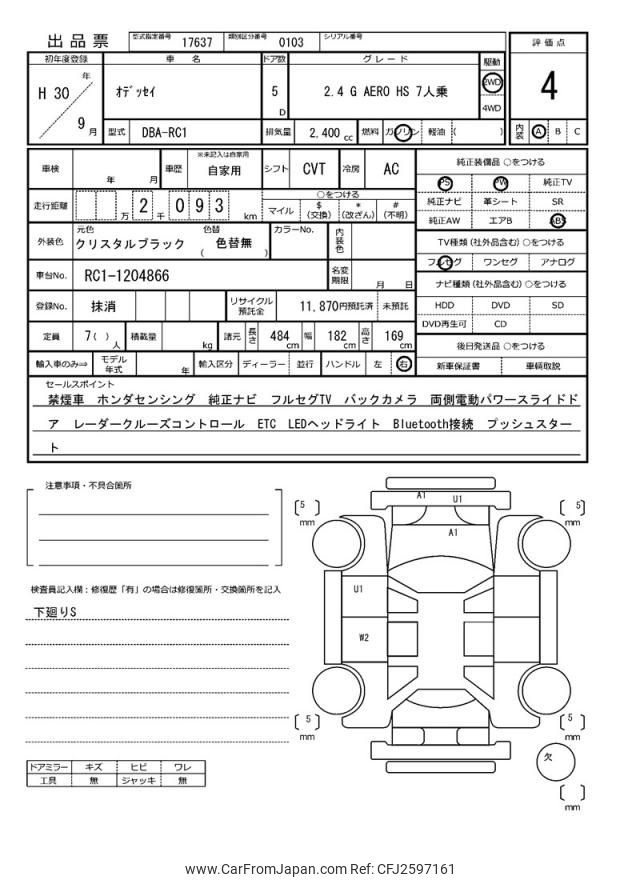 出品票 型式指定番号 17637 類別区分番号 0103 シリアル番号
初年度登録 車 名 ドア数 グレード 駆動 評価点
H 30 年 9 月
ｵﾃﾞｯｾｲ 5 D 2.4 G AERO HS 7人乗 2WD 4WD 4
型式 DBA-RC1 排気量 2,400 cc 燃料 ガソリン 軽油 ( ) 内装 A B C
車検 年 月 車歴 ※未記入は自家用 自家用 シフト CVT 冷房 AC
走行距離 万 2 千 0 9 3 km ○をつける マイル $(交換) *(改ざん) #(不明)
外装色 元色 クリスタルブラック 色替 ( 色替無 ) カラーNo. 内装色
車台No. RC1-1204866 名変期限 月 日
登録No. 抹消 リサイクル預託金 11,870円預託済 未預託
定員 7( ) 人 積載量 kg 諸元 長さ 484 cm 幅 182 cm 高さ 169 cm
輸入車のみ⇨ モデル年式 年 輸入区分 ディーラー 並行 ハンドル 左 右
純正装備品 ○をつける
PS PW 純正TV
純正ナビ 革シート SR
純正AW エアB ABS
TV種類 (社外品含む) ○をつける
フルセグ ワンセグ アナログ
ナビ種類 (社外品含む) ○をつける
HDD DVD SD
DVD再生可 CD
後日発送品 ○をつける
新車保証書 車輌取説
セールスポイント
禁煙車 ホンダセンシング 純正ナビ フルセグTV バックカメラ 両側電動パワースライドド
ア レーダークルーズコントロール ETC LEDヘッドライト Bluetooth接続 プッシュスター
ト
注意事項・不具合箇所
検査員記入欄：修復歴「有」の場合は修復箇所・交換箇所を記入
下廻りS
ドアミラー キズ ヒビ ワレ
工具 無 ジャッキ 無
A1 U1
[ 5 ] mm [ 5 ] mm
A1
U1
W2
[ 5 ] mm [ 5 ] mm
欠
[ ] mm
www.CarFromJapan.com Ref: CFJ2597161